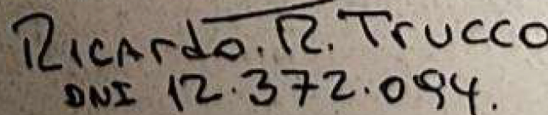 Ricardo. R. Trucco
DNI 12.372.094.